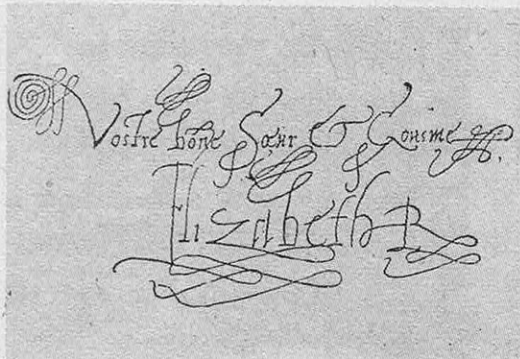 Vostre bõne Sœur Et Cousine
Elizabeth R